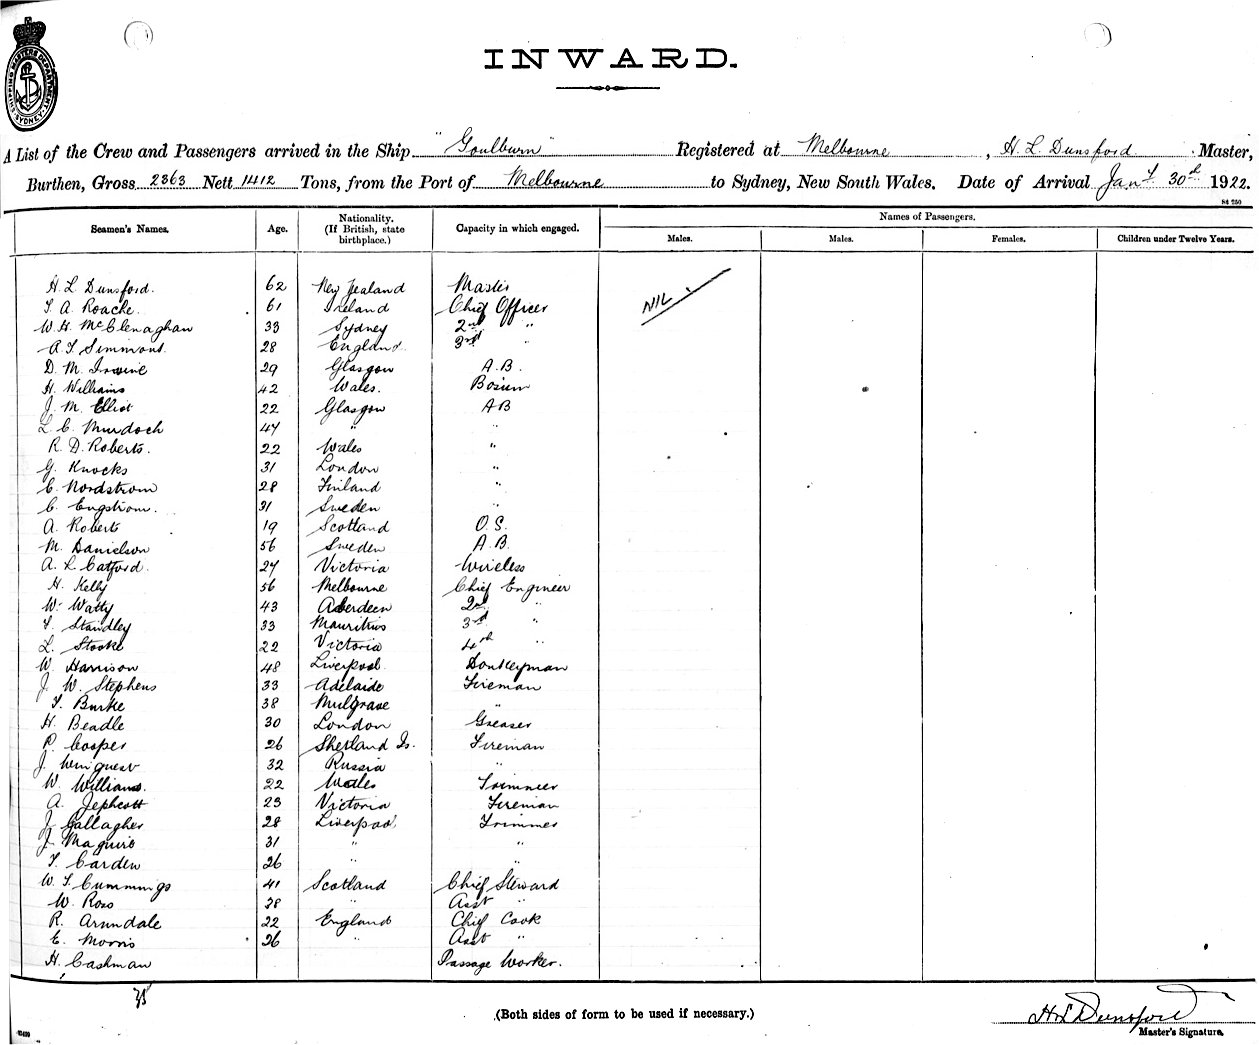 SHIPPING MASTERS DEPARTMENT
SYDNEY
INWARD.
A List of the Crew and Passengers arrived in the Ship "Goulburn" Registered at Melbourne, H. L. Dunsford. Master,
Burthen, Gross 2363 Nett 1412 Tons, from the Port of Melbourne to Sydney, New South Wales. Date of Arrival Jany 30th 1922.
S4 250
Seamen's Names. Age. Nationality. (If British, state birthplace.) Capacity in which engaged. Names of Passengers.
Males. Males. Females. Children under Twelve Years.
H. L. Dunsford. 62 New Zealand Master NIL
T. A. Roache. 61 Ireland Chief Officer
W. H. McClenaghan 33 Sydney 2nd "
A. T. Simmons. 28 England 3rd "
D. M. Irvine 29 Glasgow A.B.
H. Williams 42 Wales. Bosun
J. M. Elliot 22 Glasgow AB
L. C. Murdoch 47 " "
R. D. Roberts. 22 Wales "
G. Knocks 31 London "
C. Nordstrom 28 Finland "
C. Engstrom. 31 Sweden "
A. Roberts 19 Scotland O.S.
M. Danielson 56 Sweden A.B.
A. L. Catford. 27 Victoria Wireless
H. Kelly 56 Melbourne Chief Engineer
W. Watty 43 Aberdeen 2nd "
T. Standley 33 Mauritius 3rd "
L. Stooke 22 Victoria 4th "
W. Harrison 48 Liverpool Donkeyman
J. W. Stephens 33 Adelaide Fireman
T. Burke 38 Mulgrave "
H. Beadle 30 London Greaser
P. Cooper 26 Shetland Is. Fireman
J. Winquest 32 Russia "
W. Williams. 22 Wales Trimmer
A. Jephcott 23 Victoria Fireman
J. Gallagher 28 Liverpool Trimmer
J. Maguire 31 " "
T. Carden 26 " "
W. T. Cummings 41 Scotland Chief Steward
W. Ross 28 " Asst "
R. Arundale 22 England Chief Cook
E. Morris 26 " Asst "
H. Cashman Passage Worker.
35
(Both sides of form to be used if necessary.)
H L Dunsford
Master's Signature.